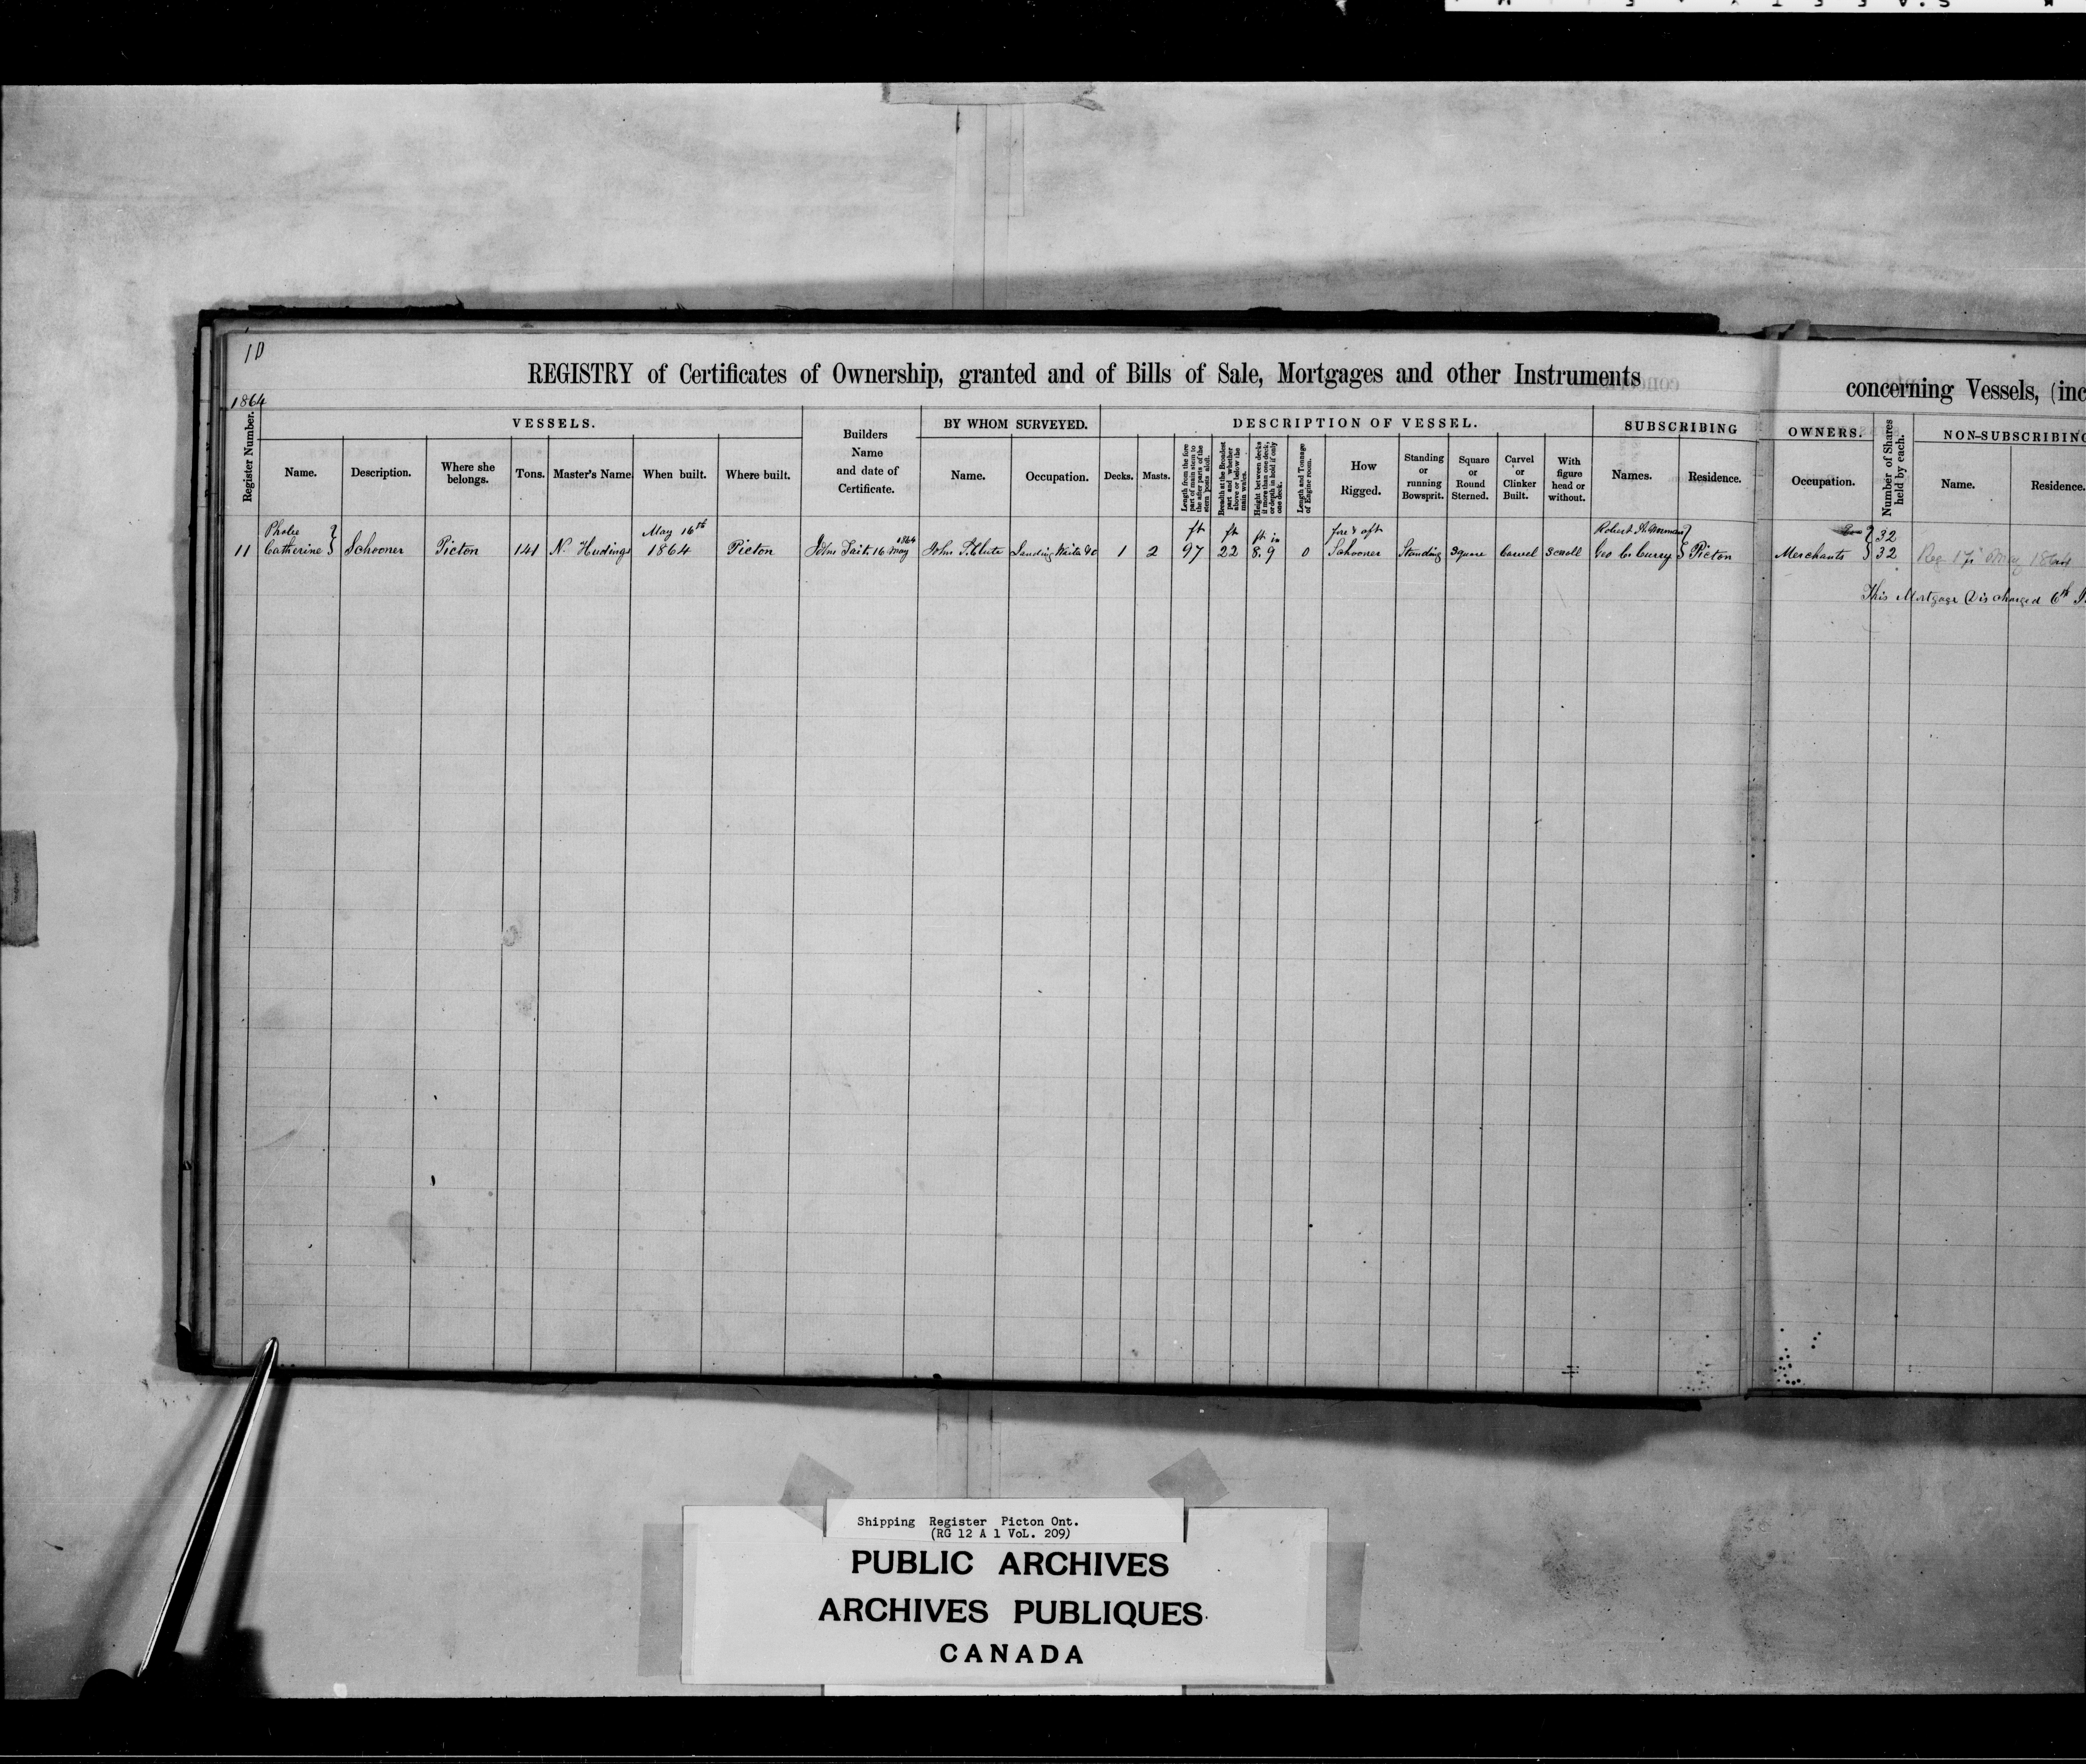 10
REGISTRY of Certificates of Ownership, granted and of Bills of Sale, Mortgages and other Instruments
concerning Vessels, (inc
1864
Register Number.
VESSELS.
Name.
Description.
Where she belongs.
Tons.
Master's Name
When built.
Where built.
Builders
Name
and date of
Certificate.
BY WHOM SURVEYED.
Name.
Occupation.
DESCRIPTION OF VESSEL.
Decks.
Masts.
Length from the fore part of main stem to the after parts of the stern posts aloft.
Breadth at the Broadest part and whether above or below the main wales.
Height between decks if more than one deck, or depth in hold if only one deck.
Length and Tonnage of Engine room.
How
Rigged.
Standing
or
running
Bowsprit.
Square
or
Round
Sterned.
Carvel
or
Clinker
Built.
With
figure
head or
without.
SUBSCRIBING
Names.
Residence.
OWNERS.
Occupation.
Number of Shares held by each.
NON-SUBSCRIBING
Name.
Residence.
Phobe
11 Catherine Schooner Picton 141 N. Hudings May 16th 1864 Picton John Tait 16 May 1864 John Landing Waiter &c 1 2 ft 97 ft 22 ft in 8,9 0 fore & aft Schooner Standing Square Carvel Scroll Robert Geo C. Curry Picton Merchants 32
32
Reg 17 May 1864
This Mortgage Discharged 6th
Shipping Register Picton Ont.
(RG 12 A 1 VoL. 209)
PUBLIC ARCHIVES
ARCHIVES PUBLIQUES
CANADA